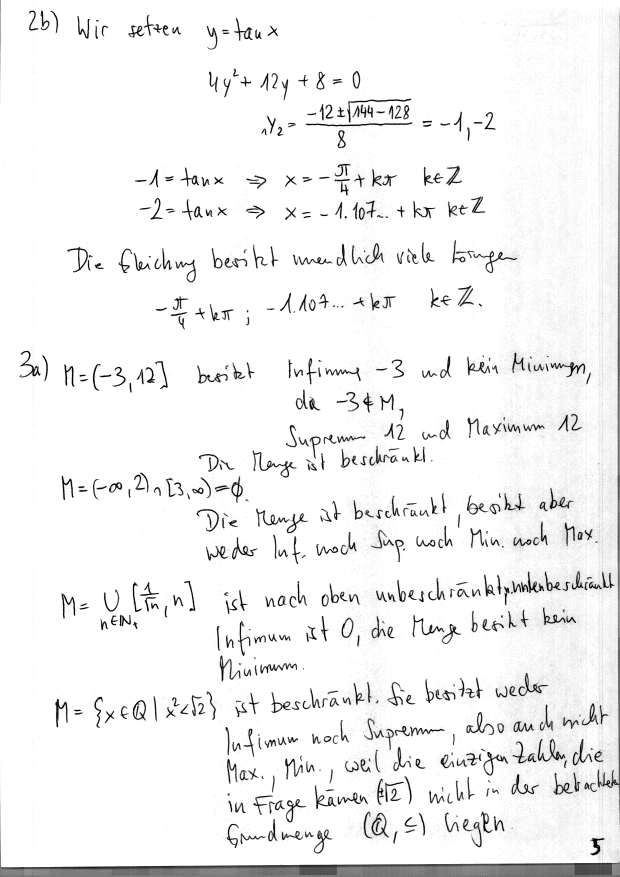 2b) Wir setzen y = tan x
4y² + 12y + 8 = 0
₁y₂ = (-12 ± √(144 - 128)) / 8 = -1, -2
-1 = tan x ⇒ x = -π/4 + kπ k∈ℤ
-2 = tan x ⇒ x = -1.107... + kπ k∈ℤ
Die Gleichung besitzt unendlich viele Lösungen
-π/4 + kπ ; -1.107... + kπ k∈ℤ.
3a) M = (-3, 12] besitzt Infimum -3 und kein Minimum,
da -3 ∉ M,
Supremum 12 und Maximum 12
Die Menge ist beschränkt.
M = (-∞, 2) ∩ [3, ∞) = ∅.
Die Menge ist beschränkt, besitzt aber
weder Inf. noch Sup. noch Min. noch Max.
M = ∪ n∈ℕ₊ [1/√n, n] ist nach oben unbeschränkt, unten beschränkt
Infimum ist 0, die Menge besitzt kein
Minimum.
M = {x ∈ ℚ | x² < √2} ist beschränkt. Sie besitzt weder
Infimum noch Supremum, also auch nicht
Max., Min., weil die einzigen Zahlen, die
in Frage kämen (±√2) nicht in der betrachteten
Grundmenge (ℚ, ≤) liegen.
5